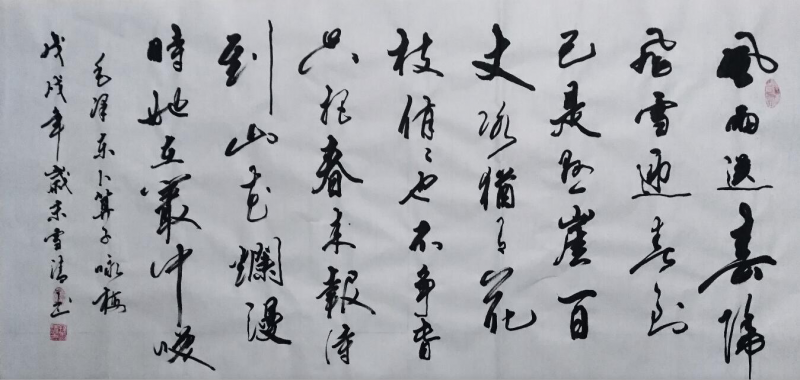 風雨送春歸
飛雪迎春到
已是懸崖百
丈冰猶有花
枝俏〻也不争春
只把春来報待
到山花爛漫
時她在叢中咲
毛澤东卜算子咏梅
戊戌年歲末雪清书